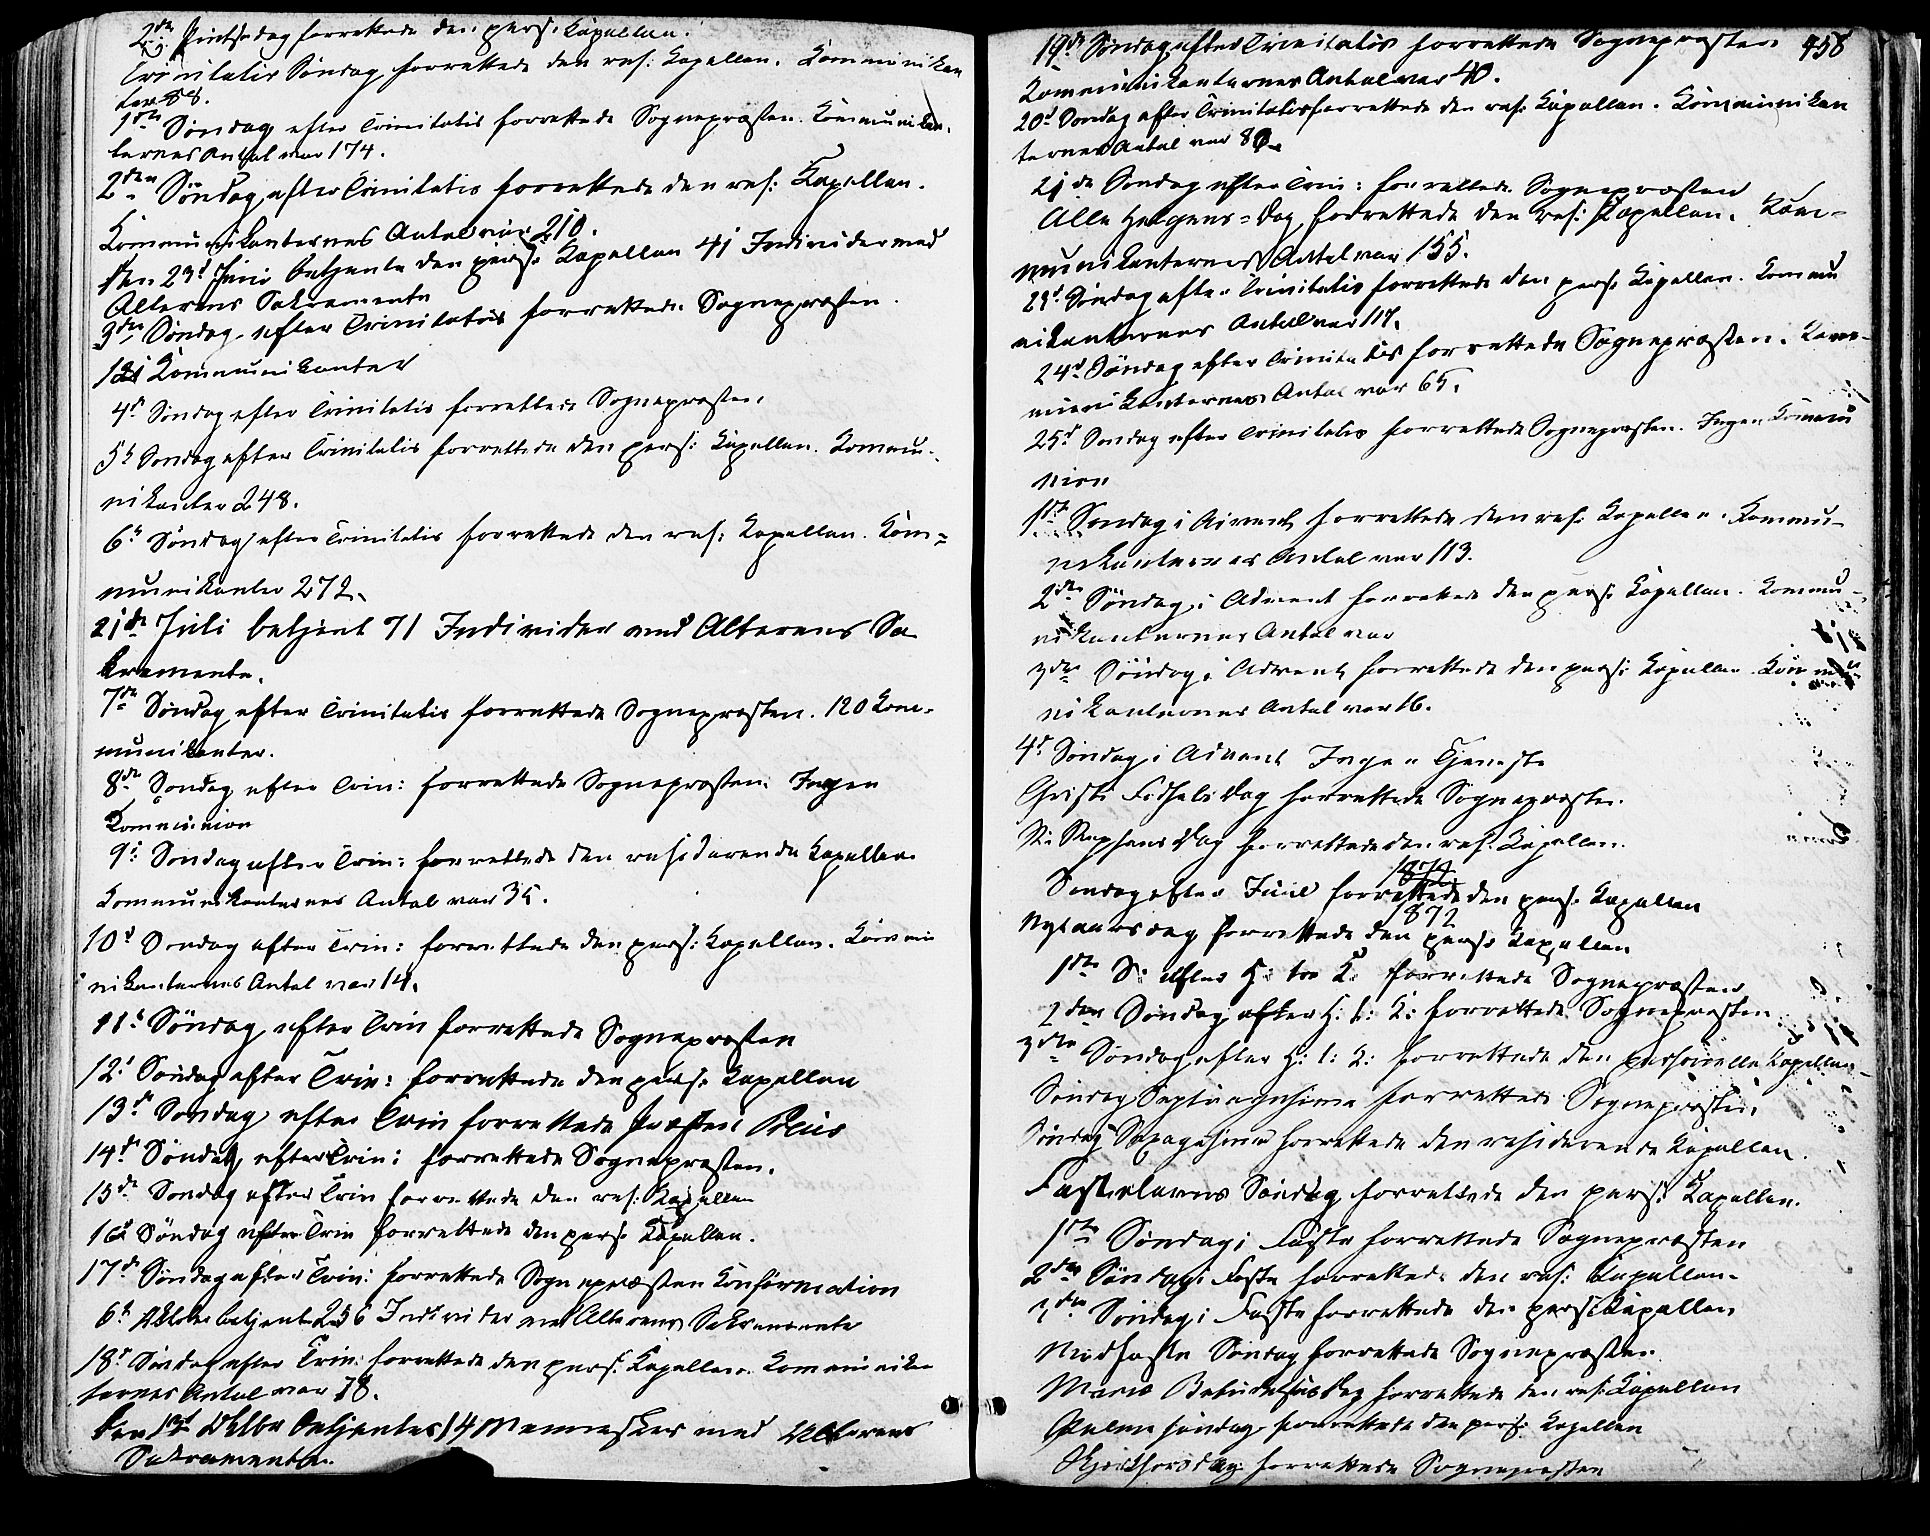 2den Pintsedag forrettede den pers: Kapellan.
Trinitatis Søndag forrettede den res: Kapellan. Kommunikan
ter 88.
1ste Søndag efter Trinitatis forrettede Sognepræsten. Kommunikan-
ternes Antal var 174.
2den Søndag efter Trinitatis forrettede den res: Kapellan.
Kommunikanternes Antal var 210.
Den 23d Juni betjente den pers: Kapellan 41 Individer med
Alterens Sakramente
3die Søndag efter Trinitatis forrettede Sognepræsten.
121 Kommunikanter
4d Søndag efter Trinitatis forrettede Sognepræsten.
5t Søndag efter Trinitatis forrettede den pers: Kapellan. Kommu-
nikanter 248.
6t Søndag efter Trinitatis forrettede den res: Kapellan. Kom=
munikanter 272.
21de Juli betjent 71 Individer med Alterens Sa
kramente.
7de Søndag efter Trinitatis forrettede Sognepræsten. 120 Kom-
munikanter.
8de Søndag efter Trin: forrettede Sognepræsten. Ingen
Kommunion
9d Søndag efter Trin: forrettede den residerende Kapellan
Kommunikanternes Antal var 35.
10d Søndag efter Trin: forrettede den pers: Kapellan. Kommu
nikanternes Antal var 14.
11t Søndag efter Trin forrettede Sognepræsten
12t Søndag efter Trin: forrettede den pers: Kapellan
13de Søndag efter Trin forrettede Præsten Preus
14de Søndag efter Trin: forrettede Sognepræsten.
15de Søndag efter Trin forrettede den res: Kapellan
16d Søndag efter Trin forrettede den pers: Kapellan.
17de Søndag efter Trin: forrettede Sognepræsten Konfirmation
6t Oktober betjent 256 Individer med Alterens Sakramente
18d Søndag efter Trin: forrettede den pers: Kapellan. Kommunikan
ternes Antal var 78.
Den 13d Oktbr betjentes 14 Mennesker med Alterens
Sakramente.
19de Søndag efter Trinitatis forrettede Sognepræsten 458
Kommunikanternes Antal var 40.
20d Søndag efter Trinitatis forrettede den res: Kapellan. Kommunikan
ternes Antal var 80.
21de Søndag efter Trin: forrettede Sognepræsten
Alle Helgens=Dag forrettede den res: Kapellan. Kom-
munikanternes Antal var 155.
23d Søndag efter Trinitatis forrettede den pers: Kapellan. Kommu
nikanternes Antal var 117.
24d Søndag efter Trinitatis forrettede Sognepræsten. Kom-
munikanternes Antal var 65.
25d Søndag efter Trinitatis forrettede Sognepræsten. Ingen Kommu
nion
1ste Søndag i Advent forrettede den res: Kapellan. Kommu-
nikanternes Antal var 113.
2den Søndag i Advent forrettede den pers: Kapellan. Kommu-
nikanternes Antal var
3die Søndag i Advent forrettede den pers: Kapellan. Kommu
nikanternes Antal var 16.
4d Søndag i Advent Ingen Tjeneste
Christi Fødselsdag forrettede Sognepræsten.
St: Stephans Dag forrettede den res: Kapellan.
1872
Søndag efter Juul forrettede den pers: Kapellan
1872
Nytaarsdag forrettede den pers: Kapellan
1ste S: efter H: tre K: forrettede Sognepræsten
2den Søndag efter H: t: K: forrettede Sognepræsten.
3die Søndag efter H: t: K: forrettede den personelle Kapellan
Søndag Septuagesima forrettede Sognepræsten.
Søndag Sexagesima forrettede den residerende Kapellan.
Fastelavns Søndag forrettede den pers: Kapellan.
1ste Søndag i Faste forrettede Sognepræsten
2den Søndag i Faste forrettede den res: Kapellan.
3die Søndag i Faste forrettede den pers: Kapellan
Midfaste Søndag forrettede Sognepræsten
Mariæ Bebudelsesdag forrettede den res: Kapellan
Palmesøndag forrettede den pers: Kapellan
Skjærthorsdag forrettede Sognepræsten